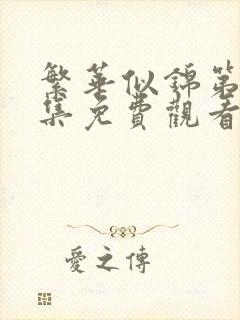 繁華似錦第
集免費觀看
愛之傳